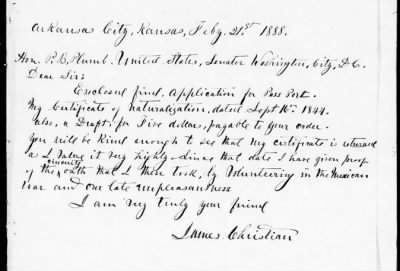 Arkansas City, Kansas, Feby. 21st 1888.
Hon. P. B. Plumb. United States, Senator Washington, City, D.C.
Dear Sir:
Enclosed find, Application for Pass Port.
My Certificate of Naturalization, dated Sept 16th 1844.
Also, a Draft, for Five dollars, payable to your order.
You will be kind enough to see that my certificate is returned
as I value it very highly. Since that date I have given proof
of the sincerity oath that I then took, by Volunteering in the Mexican
war and our late unpleasantness
I am very truly your friend
James Christian